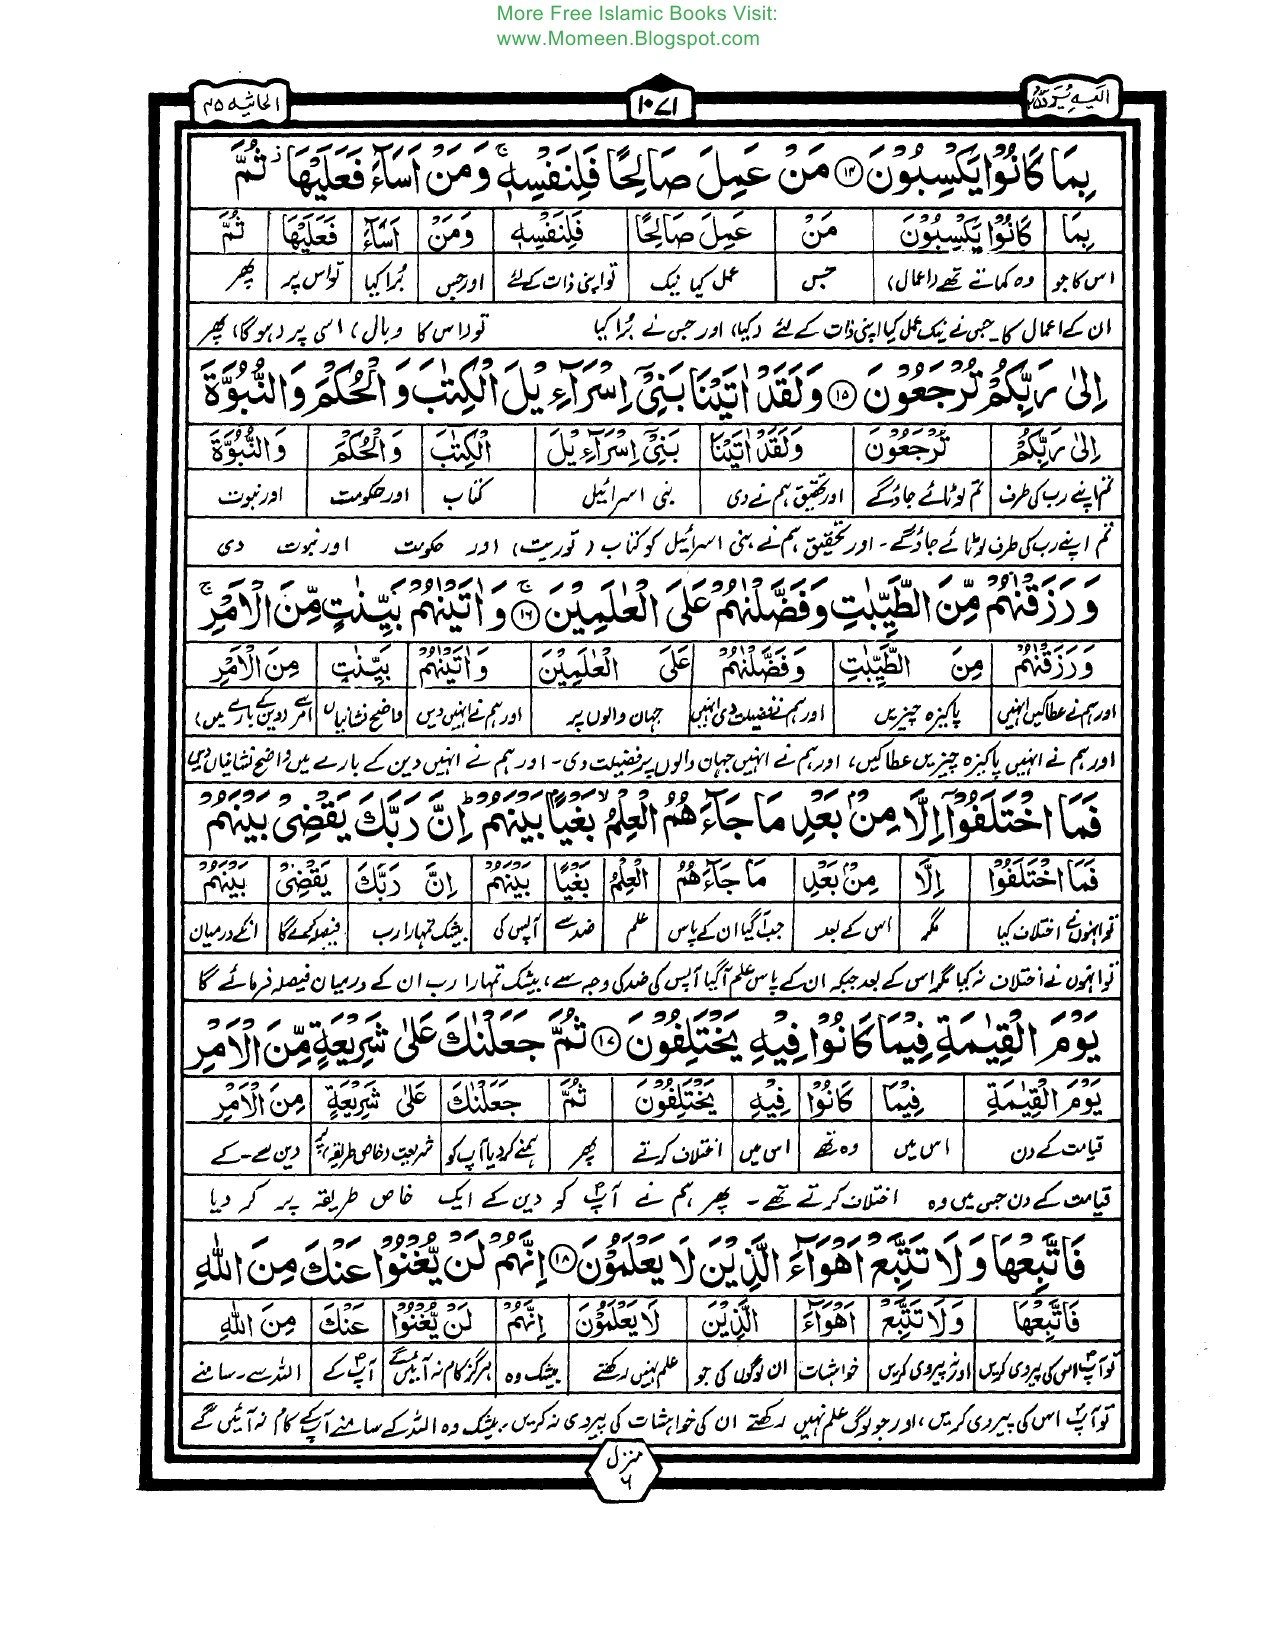 More Free Islamic Books Visit:
www.Momeen.Blogspot.com
الیہ یرد ۲۵
۱۰۷۱
الجاثیہ ۴۵
بِمَا كَانُوْا يَكْسِبُوْنَ ۝۱۴ مَنْ عَمِلَ صَالِحًا فَلِنَفْسِهٖ ۚ وَمَنْ اَسَآءَ فَعَلَيْهَا ۫ ثُمَّ
بِمَا كَانُوْا يَكْسِبُوْنَ مَنْ عَمِلَ صَالِحًا فَلِنَفْسِهٖ وَمَنْ اَسَآءَ فَعَلَيْهَا ثُمَّ
اس کا جو وہ کماتے تھے (اعمال) جس عمل کیا نیک تو اپنی ذات کے لئے اور جس بُرا کیا تو اس پر پھر
ان کے اعمال کا۔ جس نے نیک عمل کیا اپنی ذات کے لئے (کیا) اور جس نے بُرا کیا تو (اس کا وبال) اسی پر (ہوگا)، پھر
اِلٰى رَبِّكُمْ تُرْجَعُوْنَ ۝۱۵ وَلَقَدْ اٰتَيْنَا بَنِيْٓ اِسْرَآءِيْلَ الْكِتٰبَ وَالْحُكْمَ وَالنُّبُوَّةَ
اِلٰى رَبِّكُمْ تُرْجَعُوْنَ وَلَقَدْ اٰتَيْنَا بَنِيْٓ اِسْرَآءِيْلَ الْكِتٰبَ وَالْحُكْمَ وَالنُّبُوَّةَ
تم اپنے رب کی طرف تم لوٹائے جاؤگے اور تحقیق ہم نے دی بنی اسرائیل کتاب اور حکومت اور نبوت
تم اپنے رب کی طرف لوٹائے جاؤگے۔ اور تحقیق ہم نے بنی اسرائیل کو کتاب (توریت) اور حکومت اور نبوت دی
وَرَزَقْنٰهُمْ مِّنَ الطَّيِّبٰتِ وَفَضَّلْنٰهُمْ عَلَى الْعٰلَمِيْنَ ۝۱۶ۚ وَاٰتَيْنٰهُمْ بَيِّنٰتٍ مِّنَ الْاَمْرِ ۚ
وَرَزَقْنٰهُمْ مِنَ الطَّيِّبٰتِ وَفَضَّلْنٰهُمْ عَلَى الْعٰلَمِيْنَ وَاٰتَيْنٰهُمْ بَيِّنٰتٍ مِنَ الْاَمْرِ
اور ہم نے عطا کیں انہیں پاکیزہ چیزیں اور ہم نے فضیلت دی انہیں جہان والوں پر اور ہم نے انہیں دیں واضح نشانیاں امر سے (دین کے بارے میں)
اور ہم نے انہیں پاکیزہ چیزیں عطا کیں، اور ہم نے انہیں جہان والوں پر فضیلت دی۔ اور ہم نے انہیں دین کے بارے میں واضح نشانیاں دیں
فَمَا اخْتَلَفُوْٓا اِلَّا مِنْۢ بَعْدِ مَا جَآءَهُمُ الْعِلْمُ ۙ بَغْيًۢا بَيْنَهُمْ ۭ اِنَّ رَبَّكَ يَقْضِيْ بَيْنَهُمْ
فَمَا اخْتَلَفُوْٓا اِلَّا مِنْۢ بَعْدِ مَا جَآءَهُمُ الْعِلْمُ بَغْيًا بَيْنَهُمْ اِنَّ رَبَّكَ يَقْضِيْ بَيْنَهُمْ
تو انہوں نے اختلاف کیا مگر اس کے بعد جب آگیا ان کے پاس علم ضد سے آپس کی بیشک تمہارا رب فیصلہ کریگا انکے درمیان
تو انہوں نے اختلاف نہ کیا مگر اس کے بعد جبکہ ان کے پاس علم آگیا آپس کی ضد کی وجہ سے، بیشک تمہارا رب ان کے درمیان فیصلہ فرمائے گا
يَوْمَ الْقِيٰمَةِ فِيْمَا كَانُوْا فِيْهِ يَخْتَلِفُوْنَ ۝۱۷ ثُمَّ جَعَلْنٰكَ عَلٰى شَرِيْعَةٍ مِّنَ الْاَمْرِ
يَوْمَ الْقِيٰمَةِ فِيْمَا كَانُوْا فِيْهِ يَخْتَلِفُوْنَ ثُمَّ جَعَلْنٰكَ عَلٰى شَرِيْعَةٍ مِنَ الْاَمْرِ
قیامت کے دن اس میں وہ تھے اس میں اختلاف کرتے پھر ہم نے کر دیا آپ کو شریعت (خاص طریقہ) پر دین سے۔ کے
قیامت کے دن جس میں وہ اختلاف کرتے تھے۔ پھر ہم نے آپؐ کو دین کے ایک خاص طریقہ پر کر دیا
فَاتَّبِعْهَا وَلَا تَتَّبِعْ اَهْوَآءَ الَّذِيْنَ لَا يَعْلَمُوْنَ ۝۱۸ اِنَّهُمْ لَنْ يُّغْنُوْا عَنْكَ مِنَ اللّٰهِ
فَاتَّبِعْهَا وَلَا تَتَّبِعْ اَهْوَآءَ الَّذِيْنَ لَا يَعْلَمُوْنَ اِنَّهُمْ لَنْ يُّغْنُوْا عَنْكَ مِنَ اللّٰهِ
تو آپؐ اس کی پیروی کریں اور نہ پیروی کریں خواہشات ان لوگوں کی جو علم نہیں رکھتے بیشک وہ ہرگز کام نہ آئیں گے آپؐ کے اللہ سے۔ سامنے
تو آپؐ اس کی پیروی کریں، اور جو لوگ علم نہیں رکھتے ان کی خواہشات کی پیروی نہ کریں، بیشک وہ اللہ کے سامنے آپؐ کے کام نہ آئیں گے
منزل
۶